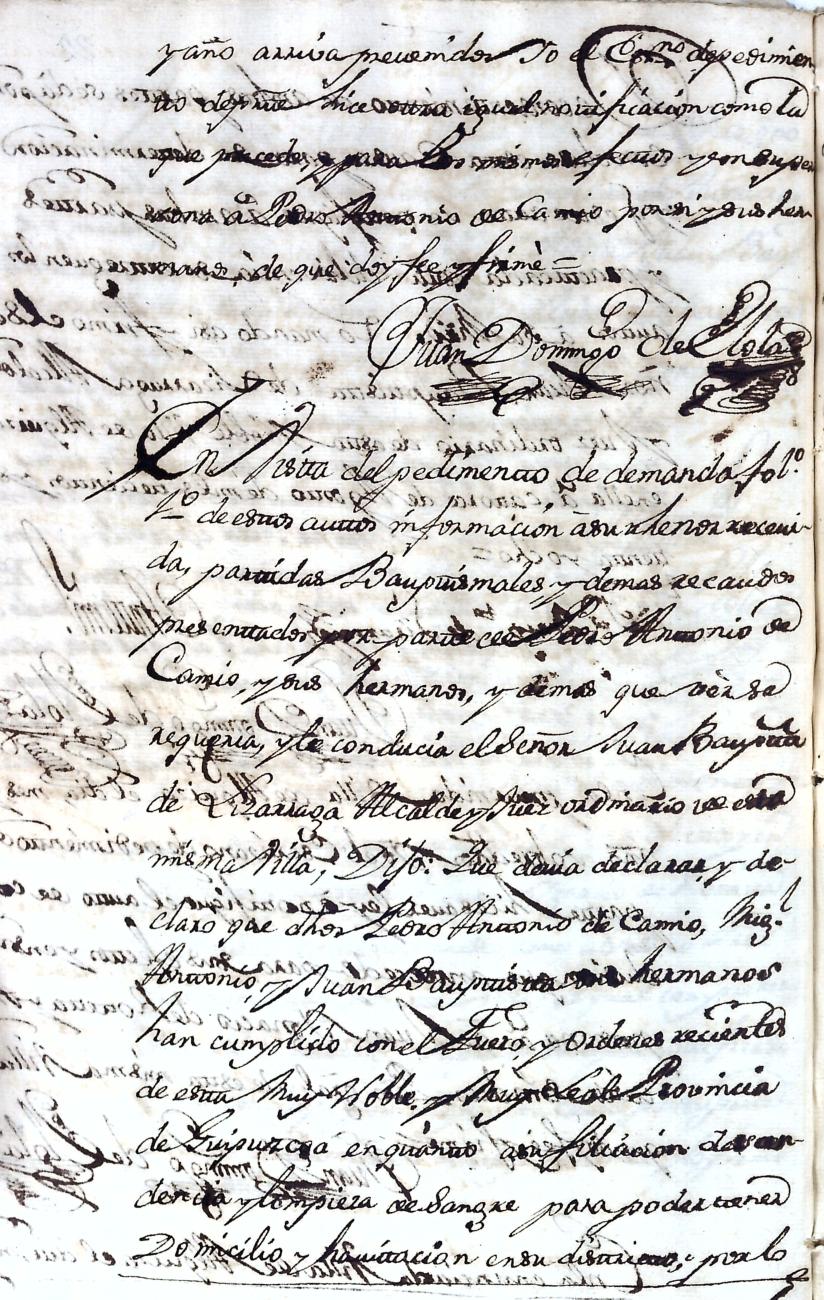 y año arriva prevenidos Yo el Essno. de pedimien
to de parte hice otra igual notificacion como la
que precede, y para los mismos efectos y en su per
sona a Pedro Antonio de Camio por si y sus her
manos, de que doy fee y firmè =
Juan Domingo de Elola
En Vista del pedimento, de demanda, fol.o
1.o de estos autos informacion â su thenor receui-
da, partidas Baptismales y demas recaudos
presentados por parte de Pedro Antonio de
Camio, y sus hermanos, y demas que vèr se
requeria, y le conducia el Señor Juan Bauptista
de Lizarraga Alcalde y Juez ordinario de esta
misma Villa, Dijo: Que deuia declarar, y de-
claro que dhos Pedro Antonio de Camio, Mig.l
Antonio, y Juan Bauptista sus hermanos
han cumplido con el Fuero y Ordenes recientes
de esta Muy Noble, y Muy Leal Provincia
de Guipuzcoa en quanto a su filiacion descen-
dencia y limpieza de Sangre para poder tener
Domicilio y hauitacion en su distrito, y por lo